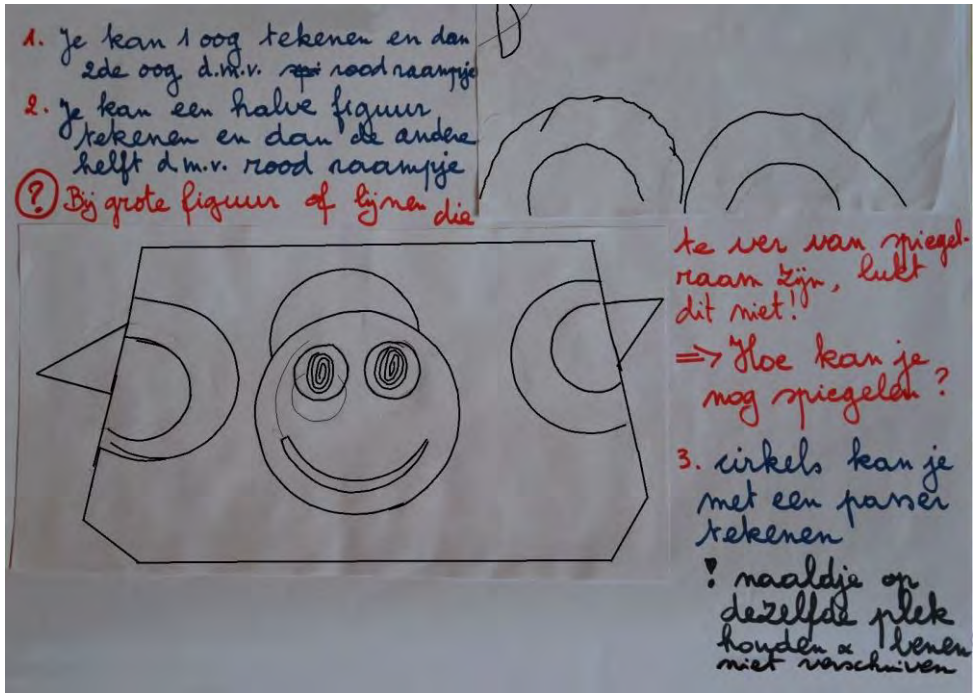 1. Je kan 1 oog tekenen en dan
2de oog d.m.v. spi rood raampje
2. Je kan een halve figuur
tekenen en dan de andere
helft d.m.v. rood raampje
? Bij grote figuur of lijnen die
te ver van spiegel-
raam zijn, lukt
dit niet!
=> Hoe kan je
nog spiegelen?
3. cirkels kan je
met een passer
tekenen
! naaldje op
dezelfde plek
houden & benen
niet verschuiven